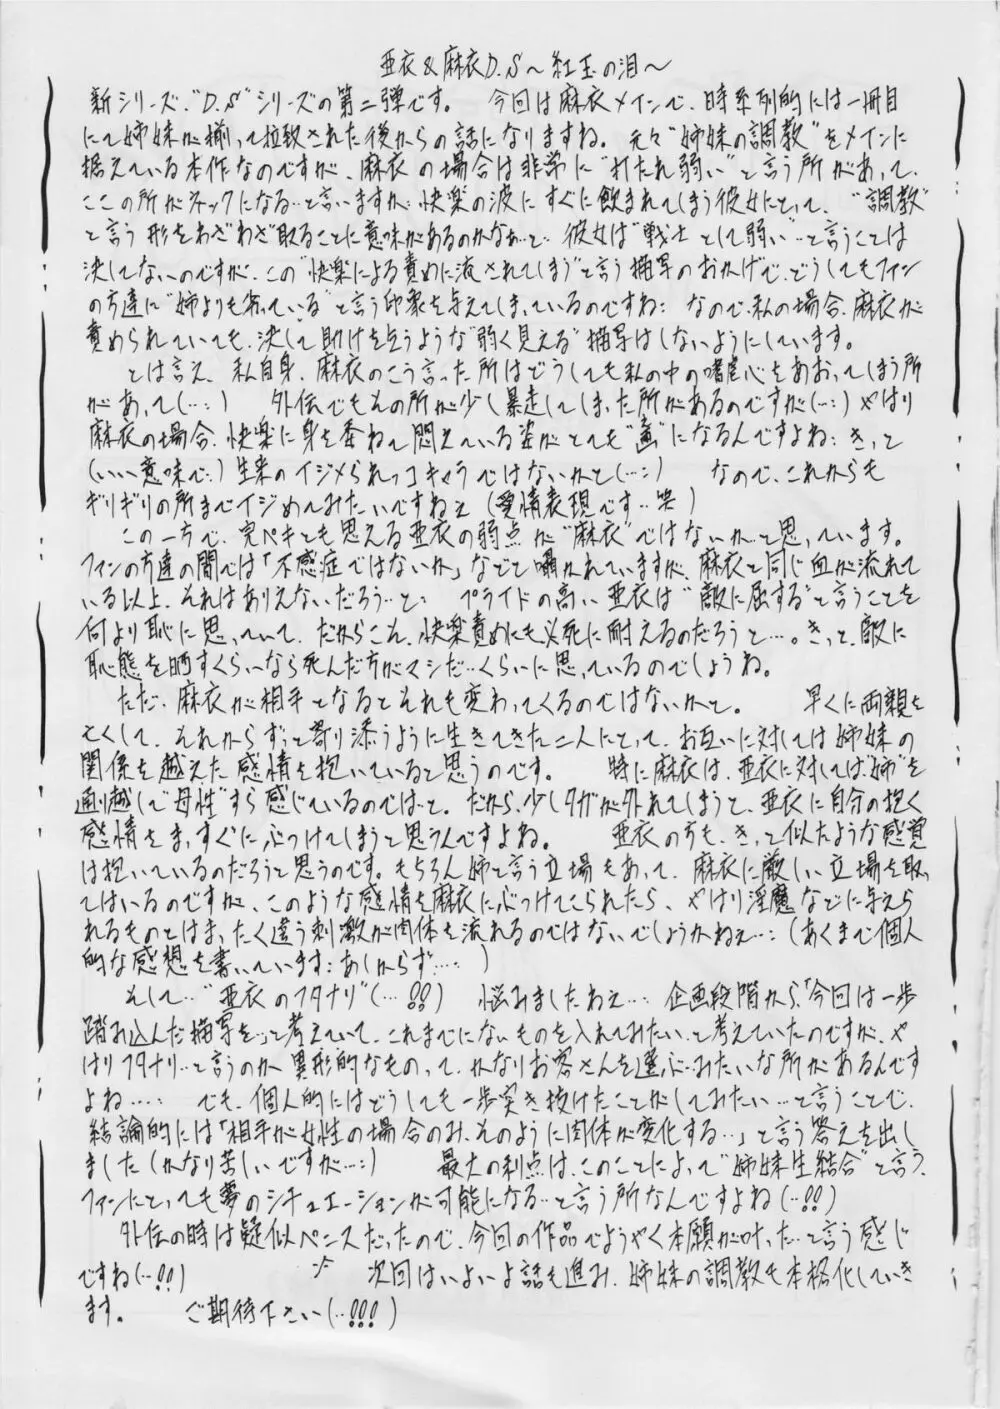 亜衣&麻衣D.S～紅玉の泪～
新シリーズ、"D.S"シリーズの第二弾です。 今回は麻衣メインで、時系列的には一冊目
にて姉妹が揃って拉致された後からの話になりますね。 元々"姉妹の調教"をメインに
据えている本作なのですが、麻衣の場合は非常に"打たれ弱い"と言う所があって、
ここの所がネックになる…と言いますか…快楽の波にすぐに飲まれてしまう彼女にとって、"調教"
と言う形をわざわざ取ることに意味があるのかなぁ…と… 彼女は"戦士として弱い"…と言うことは
決してないのですが、この"快楽による責めに流されてしまう"と言う描写のおかげで、どうしてもファン
の方達に"姉よりも劣っている"と言う印象を与えてしまっているのですね… なので、私の場合、麻衣が
責められていても、決して助けを乞うような"弱く見える"描写はしないようにしています。
とは言え、私自身、麻衣のこう言った所はどうしても私の中の嗜虐心をあおってしまう所
があって(…;) 外伝でもその所が少し暴走してしまった所があるのですが(…;)やはり
麻衣の場合、快楽に身を委ねて悶えている姿がとても"画"になるんですよね… きっと
(いい意味で…)生来のイジメられっコキャラではないかと(…;) なので、これからも
ギリギリの所までイジめてみたいですねぇ(愛情表現です…笑)
この一方で、完ペキとも思える亜衣の弱点が"麻衣"ではないかと思っています。
ファンの方達の間では「不感症ではないか」などと囁かれていますが、麻衣と同じ血が流れて
いる以上、それはありえないだろう…と… プライドの高い亜衣は"敵に屈する"と言うことを
何より恥に思っていて、だからこそ、快楽責めにも必死に耐えるのだろうと…。きっと、敵に
恥態を晒すくらいなら死んだ方がマシだ…くらいに思っているのでしょうね。
ただ、麻衣が相手となるとそれも変わってくるのではないかと。 早くに両親を
亡くして、それからずっと寄り添うように生きてきた二人にとって、お互いに対しては姉妹の
関係を越えた感情を抱いていると思うのです。 特に麻衣は、亜衣に対しては"姉"を
通り越して"母性"すら感じているのではと。だから、少しタガが外れてしまうと、亜衣に自分の抱く
感情をまっすぐにぶつけてしまうと思うんですよね。 亜衣の方も、きっと似たような感覚
は抱いているのだろうと思うのです。もちろん姉と言う立場もあって、麻衣に厳しい立場を取っ
てはいるのですが、このような感情を麻衣にぶつけてこられたら、やはり淫魔などに与えら
れるものとはまったく違う刺激が肉体を流れるのではないでしょうかねぇ…;(あくまで個人
的な感想を書いています;あしからず…;)
そして…"亜衣のフタナリ"(…!!) 悩みましたねぇ…; 企画段階から「今回は一歩
踏み込んだ描写を…」と考えていて、これまでにないものを入れてみたい、と考えていたのですが、や
はりフタナリ…と言うのか異形的なものって、かなりお客さんを選ぶ…みたいな所があるんです
よね…; でも、個人的にはどうしても一歩突き抜けたことがしてみたい…と言うことで、
結論的には「相手が女性の場合のみ、そのように肉体が変化する…」と言う答えを出し
ました(かなり苦しいですが…;) 最大の利点は、このことによって"姉妹生結合"と言う、
ファンにとっても夢のシチュエーションが可能になる…と言う所なんですよね(…!!)
外伝の時は疑似ペニスだったので、今回の作品でようやく本願が叶った…と言う感じ
ですね(…!!) 次回はいよいよ話も進み、姉妹の調教も本格化していき
ます。 ご期待下さい(…!!!)